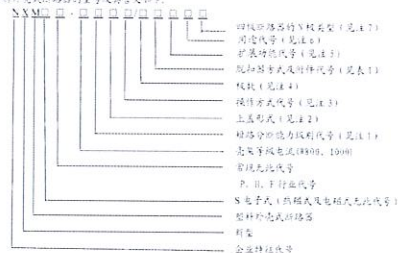 NXM□□-□□□□/□□□□□
四极断路器的N极类型(见注7)
用途代号(见注6)
扩展功能代号(见注5)
脱扣器方式及附件代号(见表1)
极数(见注4)
操作方式代号(见注3)
上盖形式(见注2)
短路分断能力级别代号(见注1)
壳架等级电流(800, 1000)
常规无此代号
P、H、F行业代号
S电子式(热磁式及电磁式无此代号)
塑料外壳式断路器
新型
企业特征代号